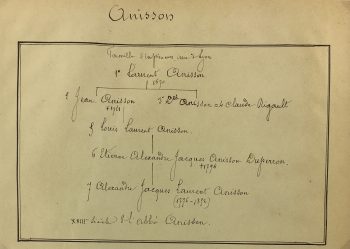 Anisson
Famille d'imprimeurs de Lyon
1º Laurent Anisson
1670
2 Jean Anisson 3º Dlle Anisson = 4 Claude Rigault
+1721
5 Louis Laurent Anisson.
6 Etienne Alexandre Jacques Anisson Duperron.
+1794
7 Alexandre Jacques Laurent Anisson
(1776-1852)
XVIIIe siècle l'abbé Anisson.